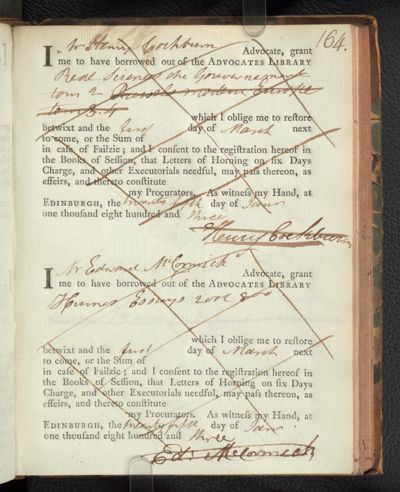 164.
I Mr Henry Cockburn Advocate, grant
me to have borrowed out of the ADVOCATES LIBRARY
Real Science du Gouvernement
tom 2 Russels modern Europe
tom 3. 4
which I oblige me to restore
betwixt and the first day of March next
to come, or the Sum of
in case of Failzie; and I consent to the registration hereof in
the Books of Session, that Letters of Horning on six Days
Charge, and other Executorials needful, may pass thereon, as
effeirs, and thereto constitute
my Procurators. As witness my Hand, at
EDINBURGH, the twenty fifth day of Jany
one thousand eight hundred and three
Henry Cockburn
I Mr Edward McCormick Advocate, grant
me to have borrowed out of the ADVOCATES LIBRARY
Humes Essays 2 vol 8vo
which I oblige me to restore
betwixt and the first day of March next
to come, or the Sum of
in case of Failzie; and I consent to the registration hereof in
the Books of Session, that Letters of Horning on six Days
Charge, and other Executorials needful, may pass thereon, as
effeirs, and thereto constitute
my Procurators. As witness my Hand, at
EDINBURGH, the twenty fifth day of Jany
one thousand eight hundred and three
Edd McCormick